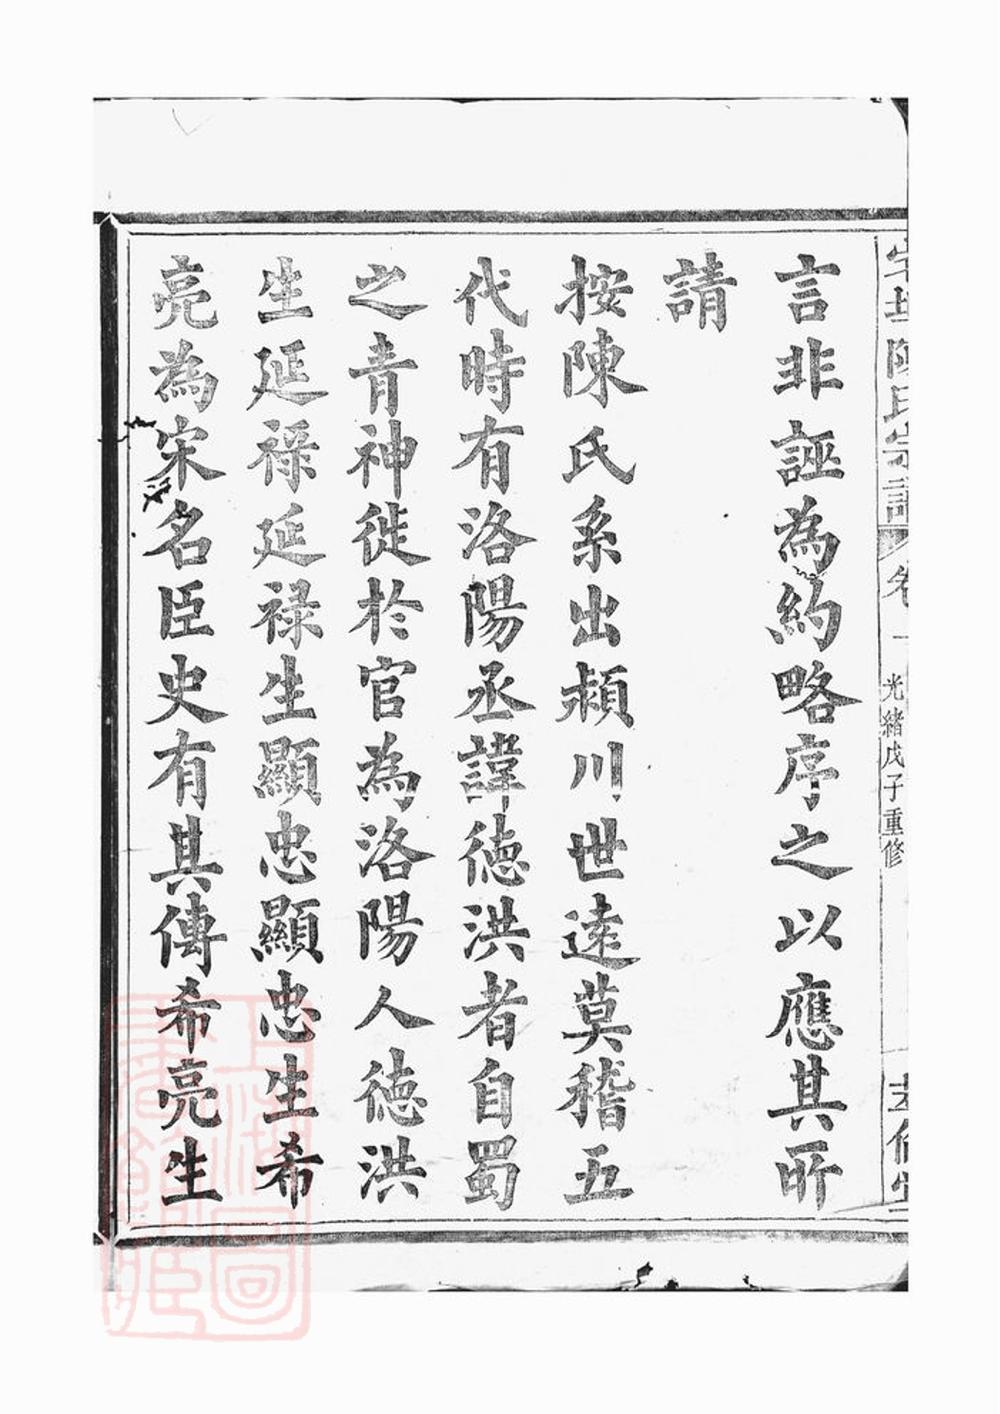 陳氏宗譜 卷一 光緒戊子重修
言非誣為約略序之以應其所
請
按陳氏系出潁川世遠莫稽五
代時有洛陽丞諱德洪者自蜀
之青神徙於官為洛陽人德洪
生延祿延祿生顯忠顯忠生希
亮為宋名臣史有其傳希亮生
上海圖書館藏